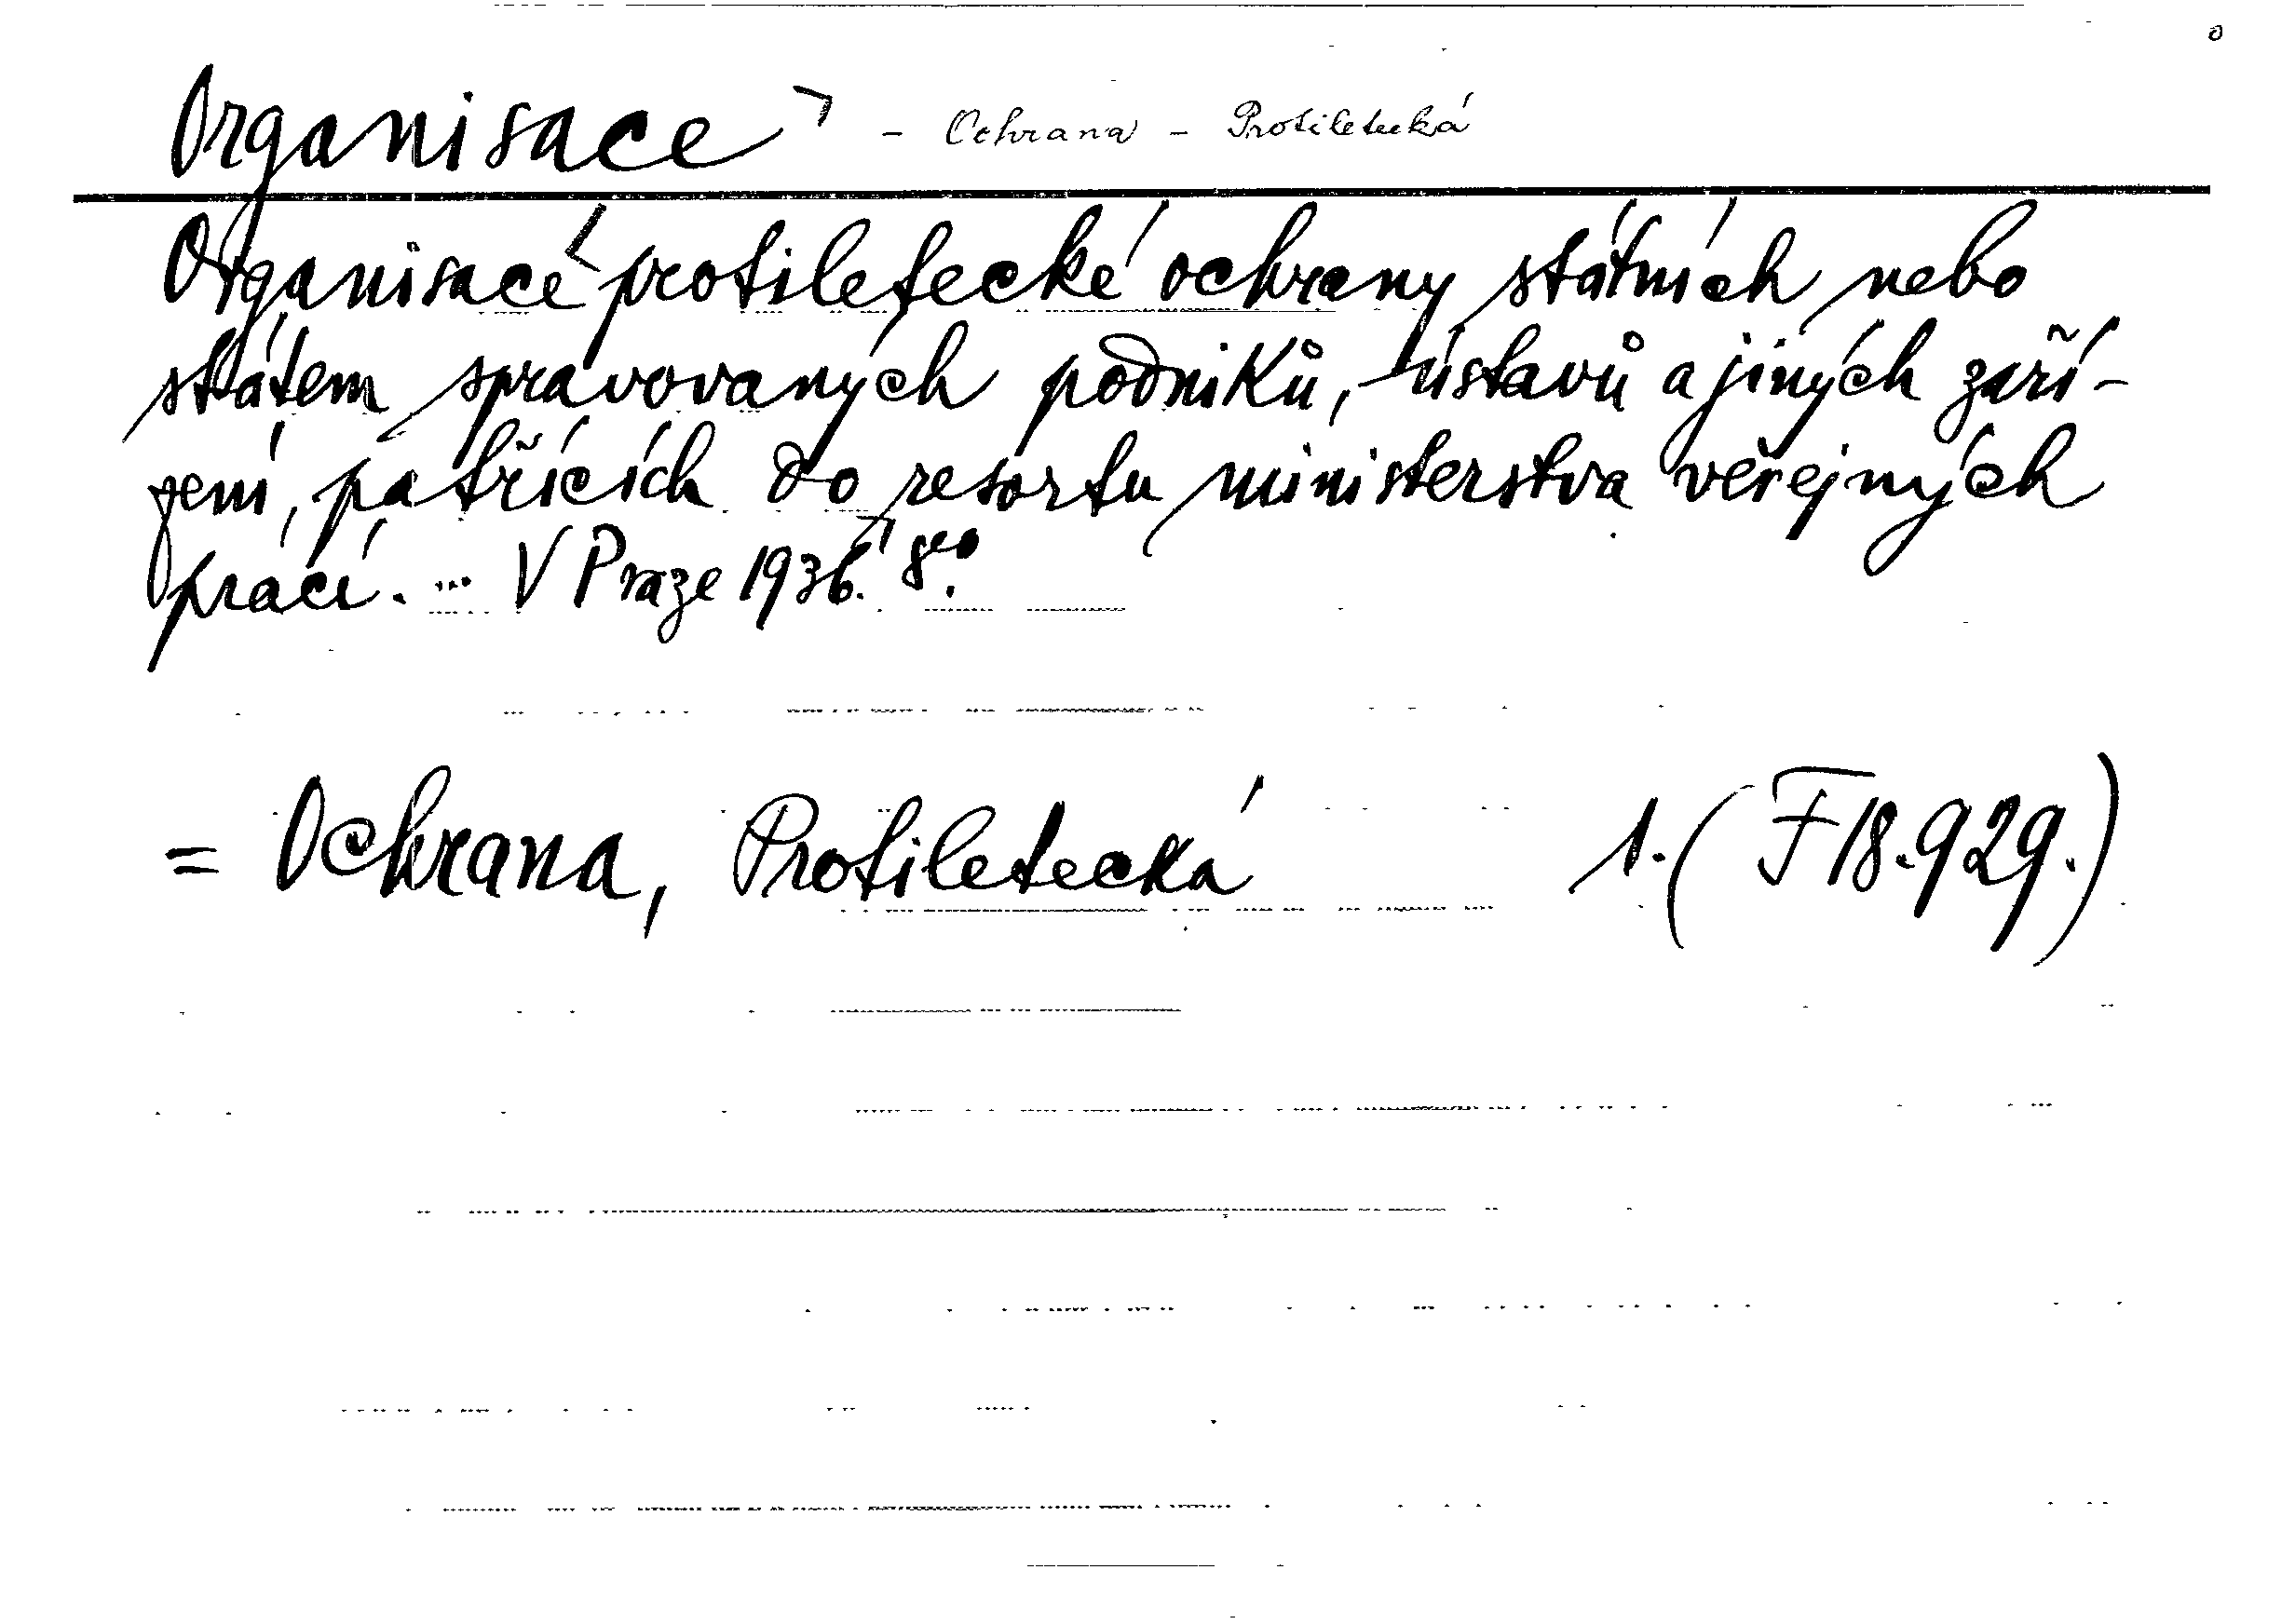 Organisace - Ochrana - Protiletecká
Organisace protiletecké ochrany státních nebo
státem spravovaných podniků, ústavů a jiných zaří-
zení, patřících do resortu ministerstva veřejných
prácí. ... V Praze 1936. 8°.
= Ochrana, Protiletecká 1. (F 18.929.)